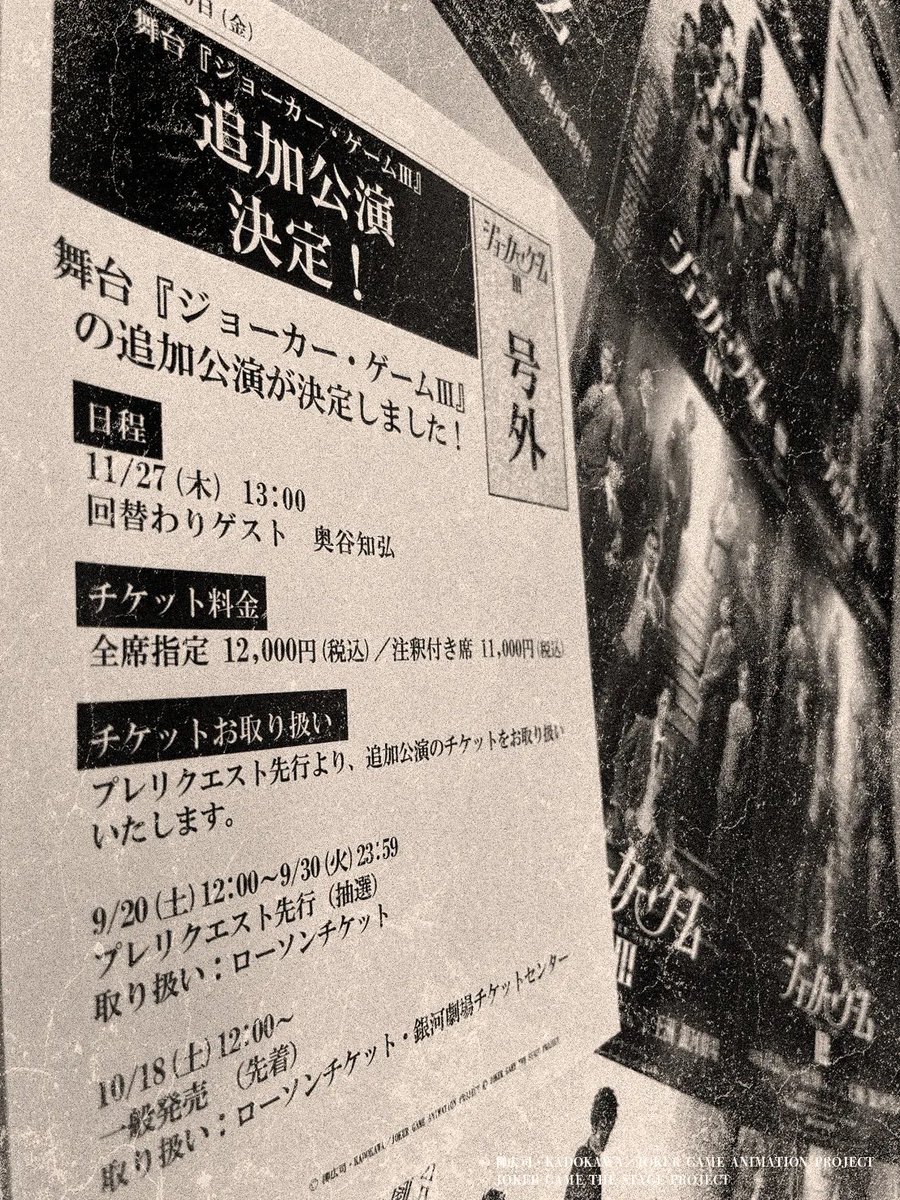 日（金）
舞台『ジョーカー・ゲームⅢ』
追加公演
決定！
ジョーカー・ゲーム
Ⅲ
号外
舞台『ジョーカー・ゲームⅢ』
の追加公演が決定しました！
日程
11/27（木） 13:00
回替わりゲスト 奥谷知弘
チケット料金
全席指定 12,000円（税込）／注釈付き席 11,000円（税込）
チケットお取り扱い
プレリクエスト先行より、追加公演のチケットをお取り扱い
いたします。
9/20（土）12:00～9/30（火）23:59
プレリクエスト先行（抽選）
取り扱い：ローソンチケット
10/18（土）12:00～
一般発売 （先着）
取り扱い：ローソンチケット・銀河劇場チケットセンター
© 柳広司・KADOKAWA／JOKER GAME ANIMATION PROJECT © JOKER GAME THE STAGE PROJECT
ジョーカー・ゲーム
Ⅲ
ジョーカー・ゲーム
Ⅲ
ジョーカー・ゲーム
© 柳広司・KADOKAWA／JOKER GAME ANIMATION PROJECT
JOKER GAME THE STAGE PROJECT